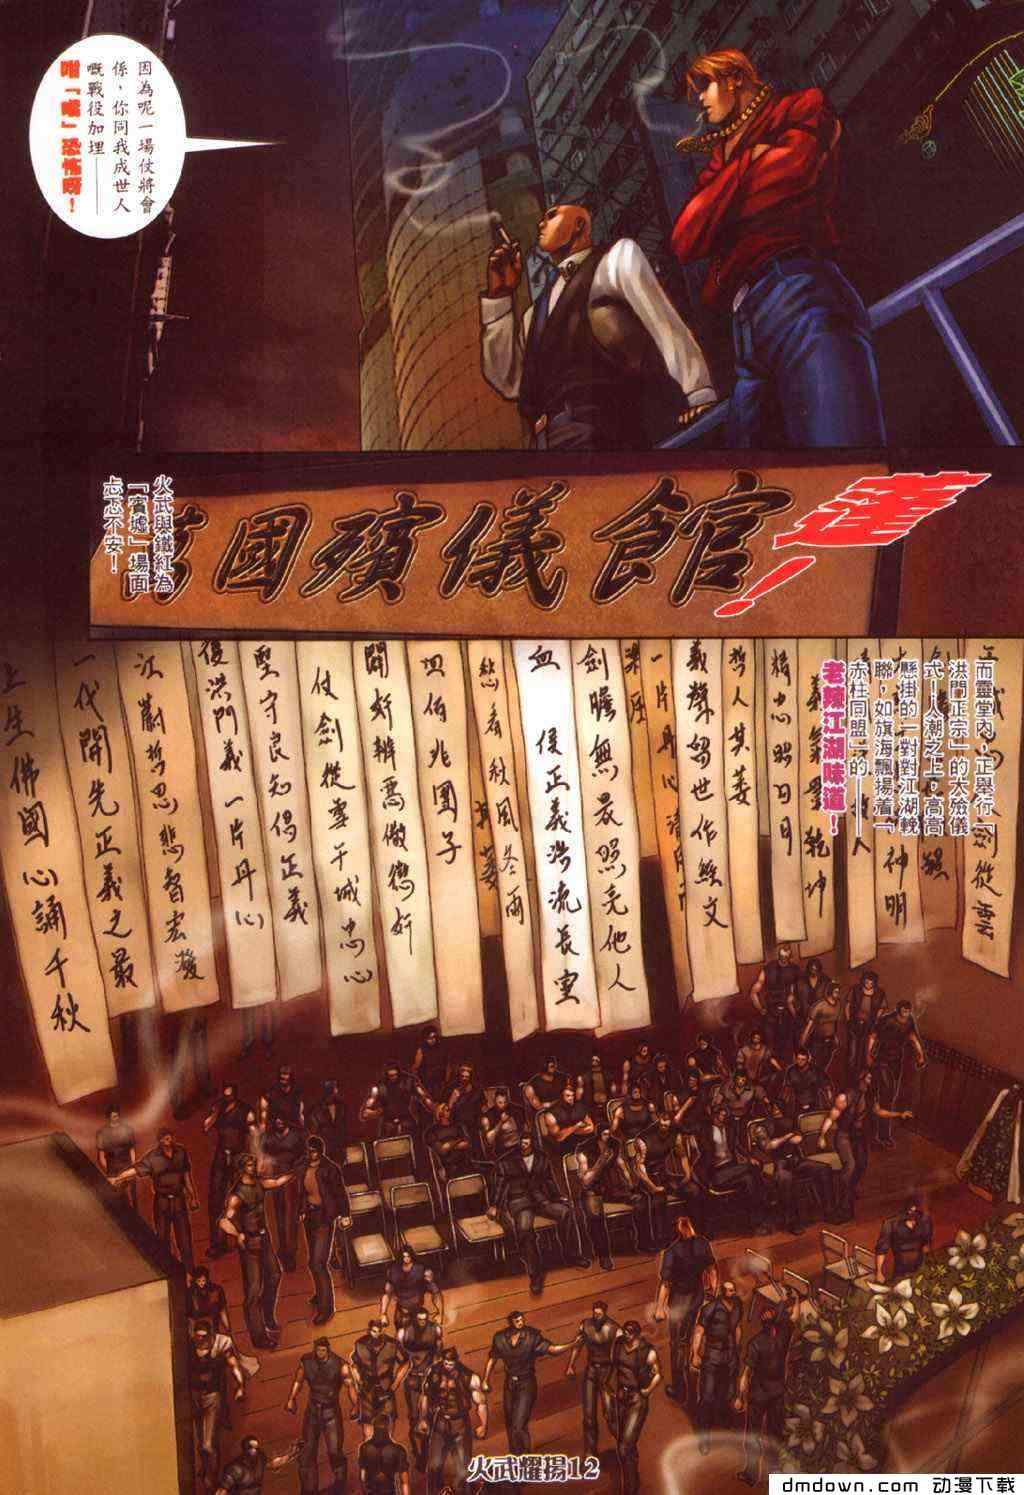 因為呢一場仗將會
係，你同我成世人
嘅戰役加埋——
咁「嘥」恐怖呀！
火武與鐵紅為
「賓墟」場面
忐忑不安！
國殯儀館
蓬！
而靈堂內，正舉行「
洪門正宗」的大殮儀
式！人潮之上，高高
懸掛的一對對江湖輓
聯，如旗海飄揚着「
赤柱同盟」的——
老辣江湖味道！
劍從雲
神明
乾坤
精忠照日月
哲人其萎
義聲留世作絲文
一片丹心
劍膽無最照亮他人
血 侵正義浩流長室
愁看秋風冬雨
血佰兆團子
開奸辨惡儆懲奸
仗劍從雲干城忠心
堅守良知倡正義
侵洪門義一片丹心
江嶄哲思悲智宏濩
一代開先正義之最
上生佛國心誦千秋
火武耀揚12
dmdown.com 动漫下载